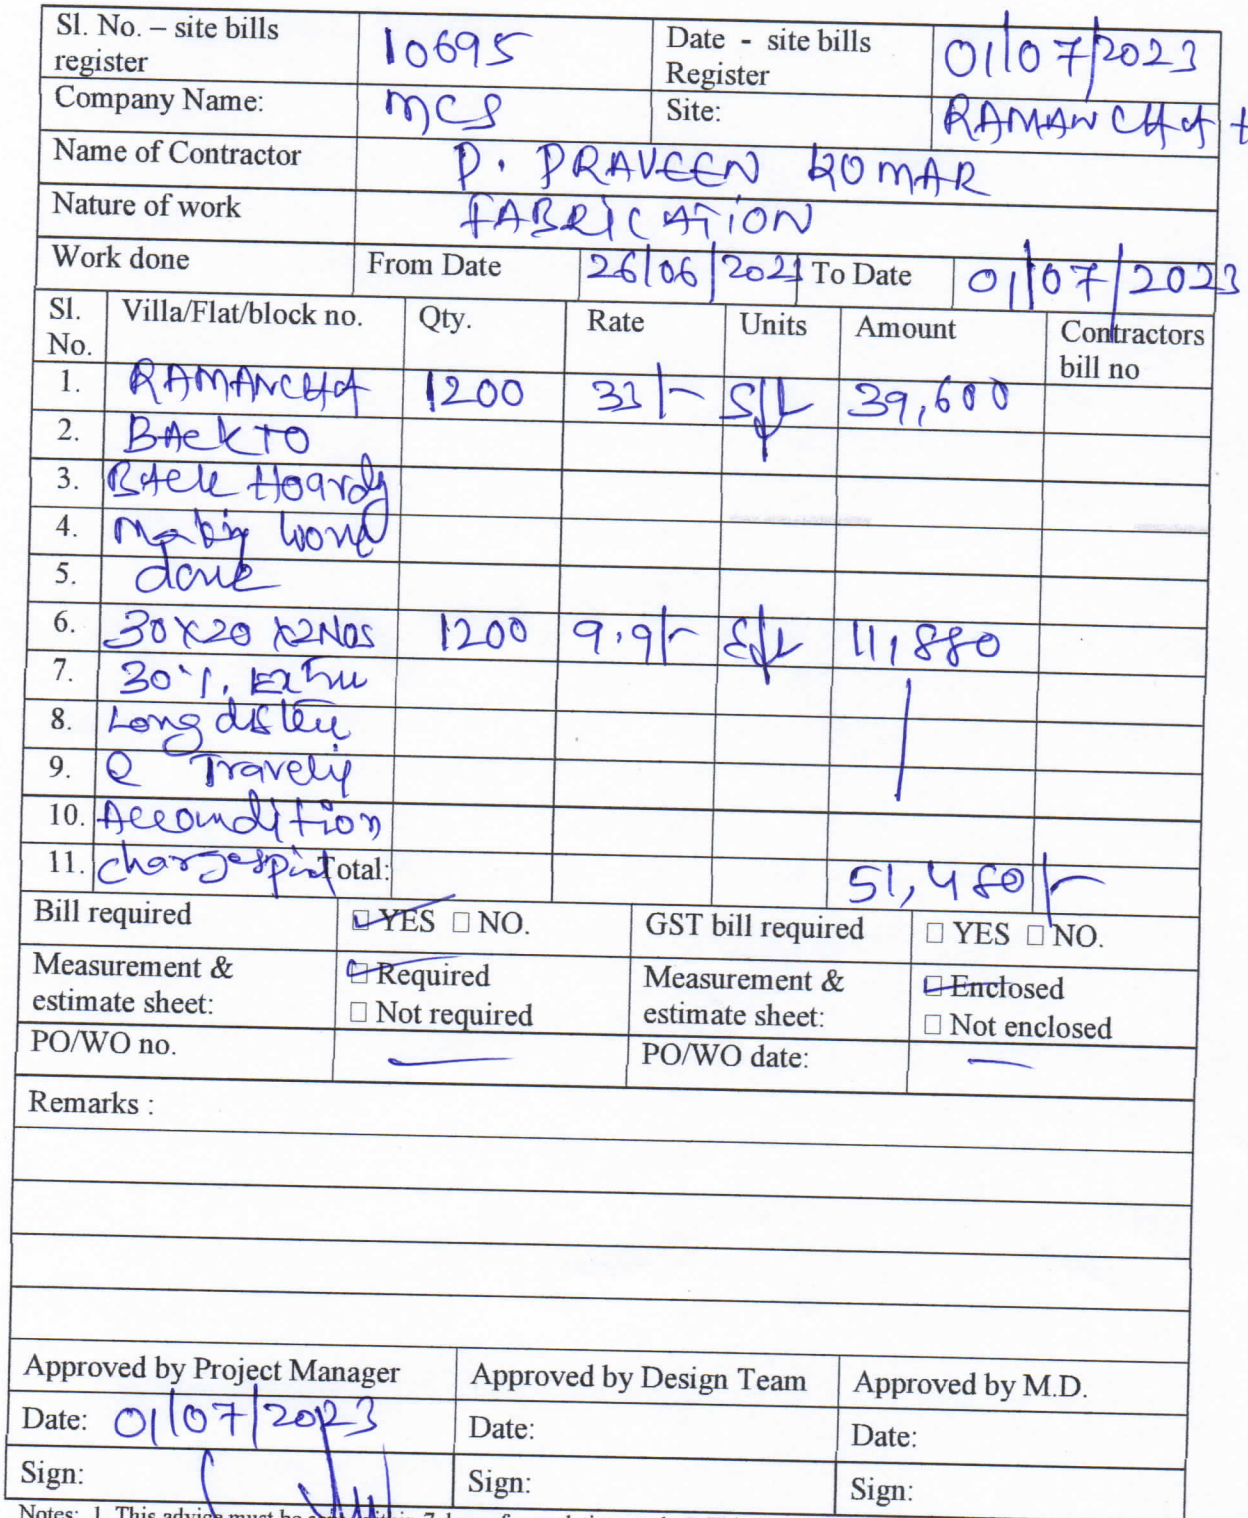 Sl. No. – site bills register 10695 Date - site bills Register 01/07/2023
Company Name: MCS Site: RAMANCHA
Name of Contractor P. PRAVEEN KUMAR
Nature of work FABRICATION
Work done From Date 26/06/2023 To Date 01/07/2023
Sl. No. Villa/Flat/block no. Qty. Rate Units Amount Contractors bill no
1. RAMANCHA 1200 33/- Sft 39,600
2. BACK TO
3. BACK Hoardg
4. Making work
5. done
6. 30X20 X2NOS 1200 9.9/- Sft 11,880
7. 30%. Extra
8. Long
9. Travelig
10. Accomdition
11. charges Total: 51,480/-
Bill required ☑ YES □ NO. GST bill required □ YES □ NO.
Measurement & estimate sheet: ☑ Required □ Not required Measurement & estimate sheet: ☑ Enclosed □ Not enclosed
PO/WO no. — PO/WO date: —
Remarks :
Approved by Project Manager Approved by Design Team Approved by M.D.
Date: 01/07/2023 Date: Date:
Sign: Sign: Sign:
Notes: 1. This advice must be